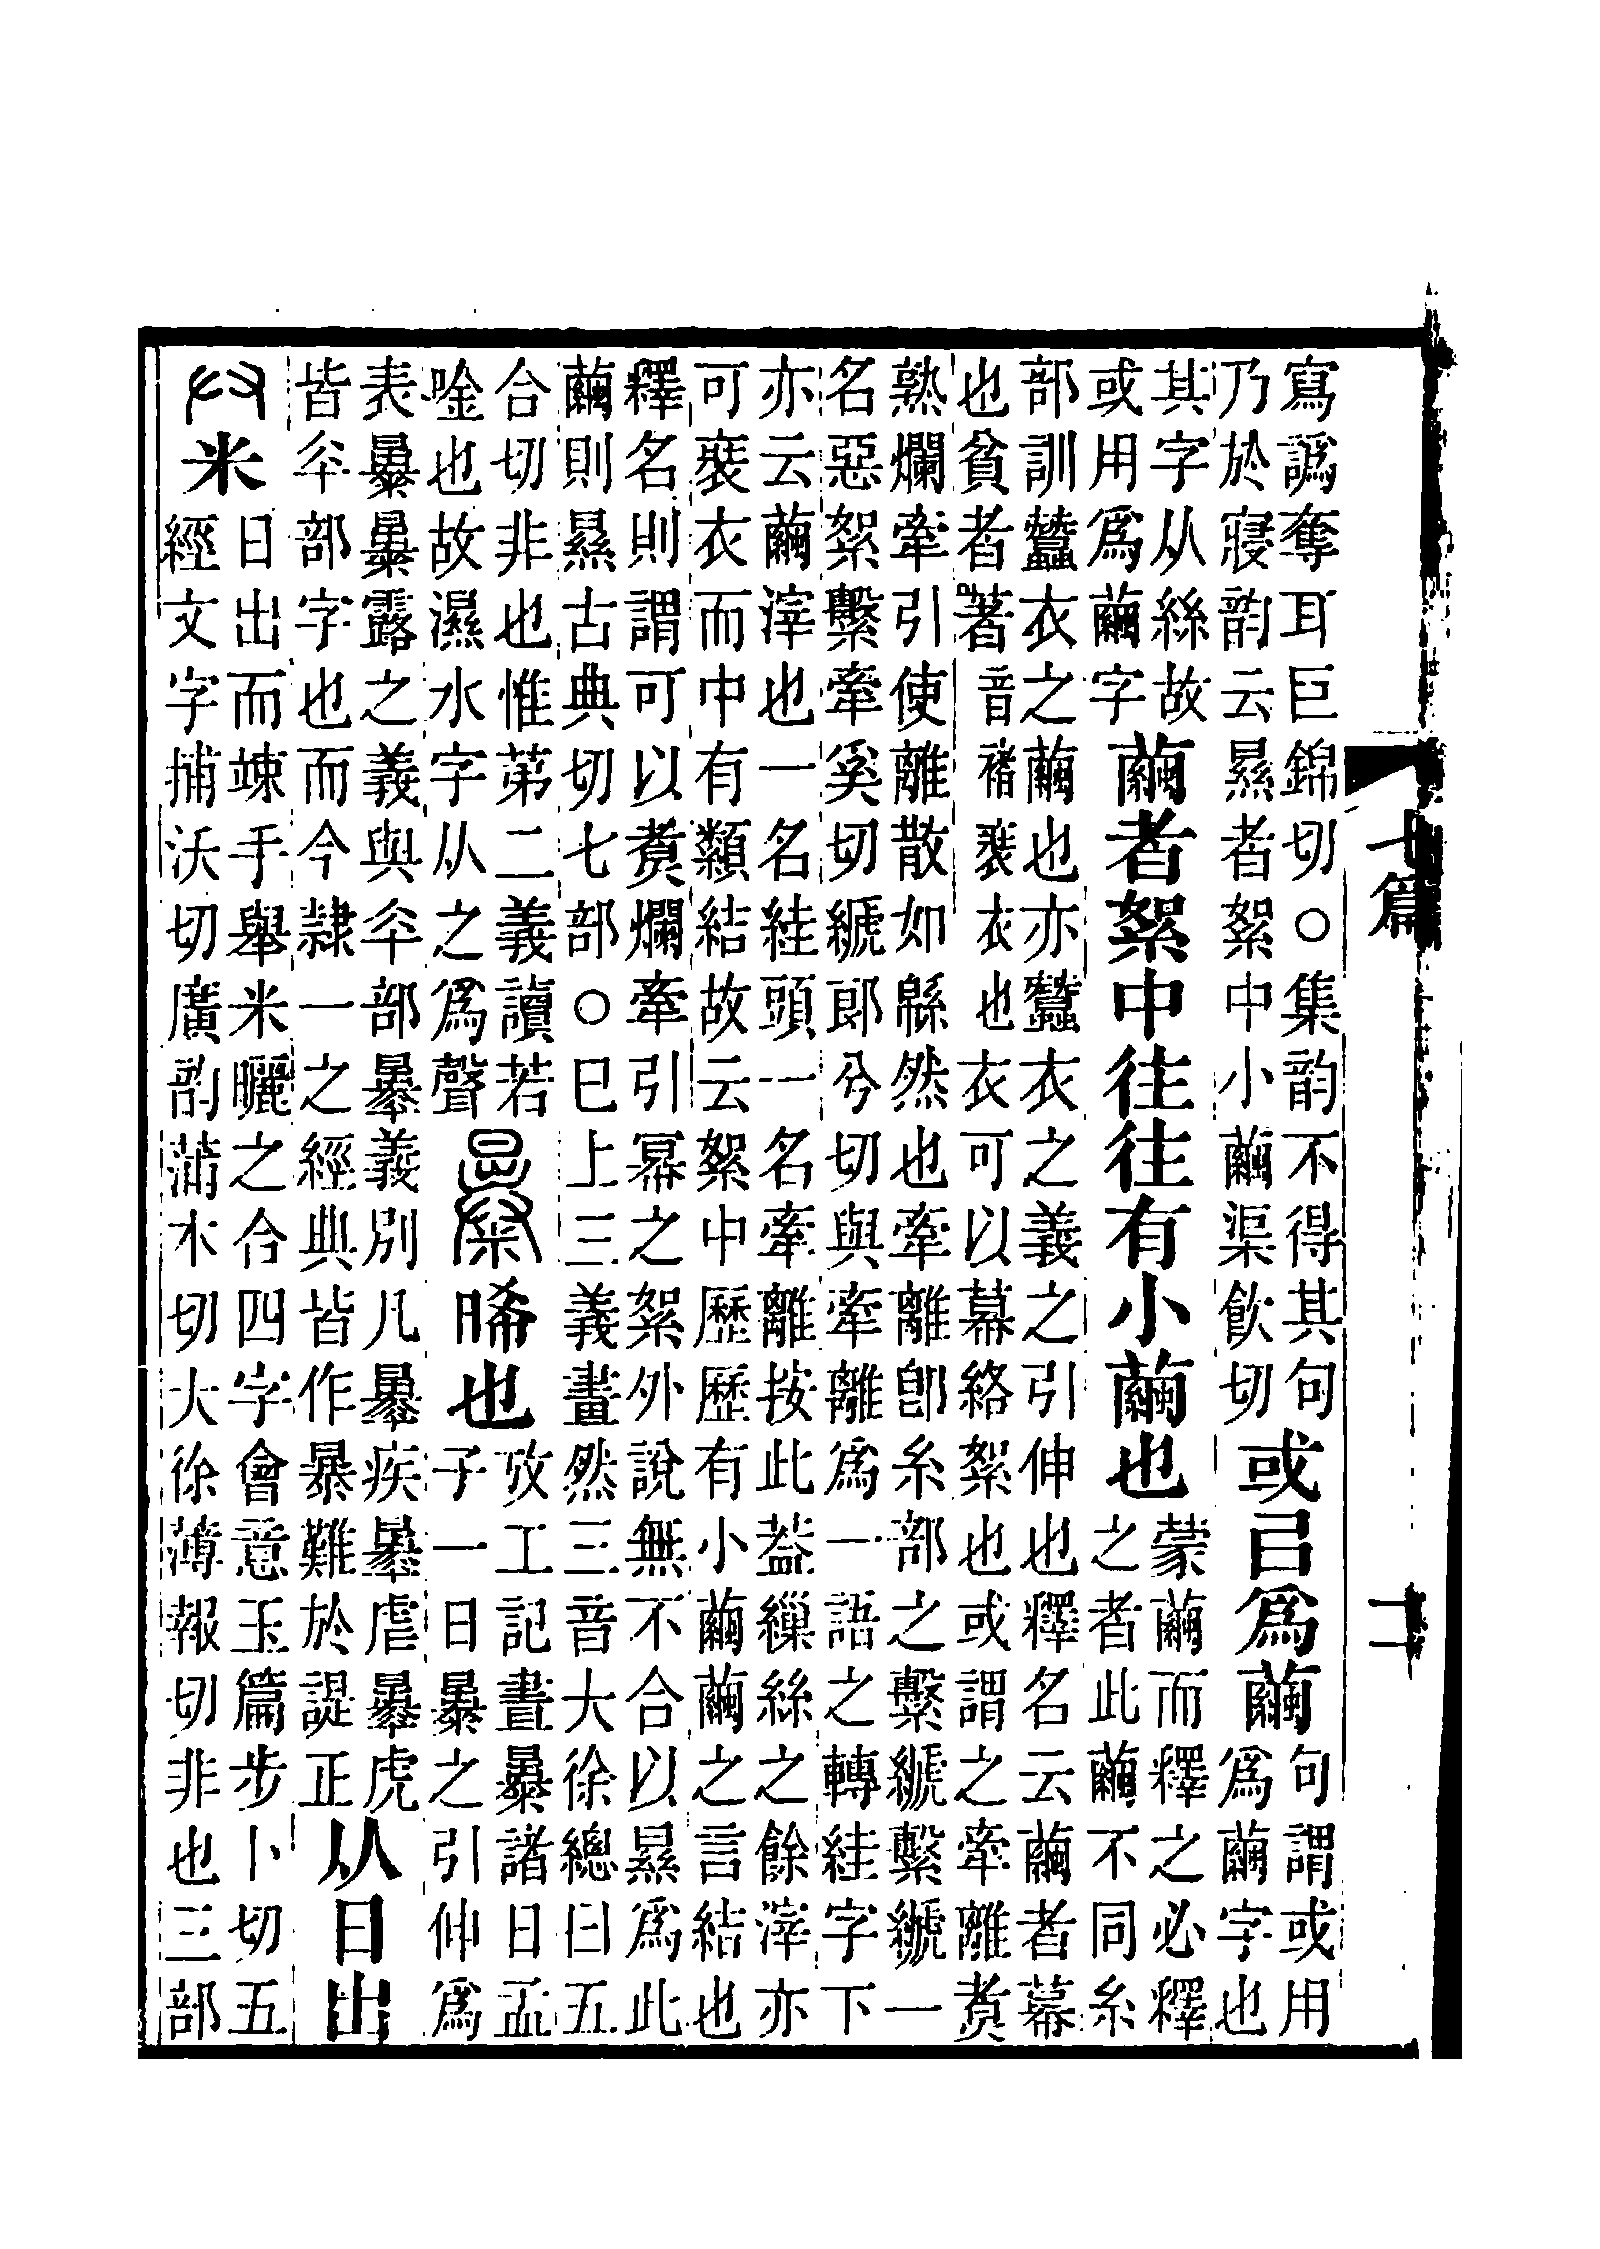 七篇
二
寫譌奪耳巨錦切○集韵不得其句
乃於寢韵云㬎者絮中小繭渠飲切
或㠯爲繭
句謂或用
爲繭字也
其字从絲故
或用爲繭字
繭者絮中往往有小繭也
蒙繭而釋之必釋
之者此繭不同糸
部訓蠶衣之繭也亦蠶衣之義之引伸也釋名云繭者幕
也貧者著音褚裝衣也衣可以幕絡絮也或謂之牽離煑
熟爛牽引使離散如緜然也牽離卽糸部之繫𦃇繫𦃇一
名惡絮繫牽奚切𦃇郎兮切與牽離爲一語之轉絓字下
亦云繭滓也一名絓頭一名牽離按此葢繅絲之餘滓亦
可裝衣而中有纇結故云絮中歷歷有小繭繭之言結也
釋名則謂可以煑爛牽引冪之絮外說無不合以㬎爲此
繭則㬎古典切七部○巳上三義畫然三音大徐總曰五
合切非也惟第二義讀若
唫也故濕水字从之爲聲
㬥晞也
攷工記晝㬥諸日孟
子一日暴之引伸爲
表㬥㬥露之義與夲部㬧義別凡㬧疾㬧虐㬧虎
皆夲部字也而今隷一之經典皆作暴難於諟正
从日出
𠬞米
日出而竦手舉米曬之合四字會意玉篇步卜切五
經文字捕沃切廣韵蒲木切大徐薄報切非也三部